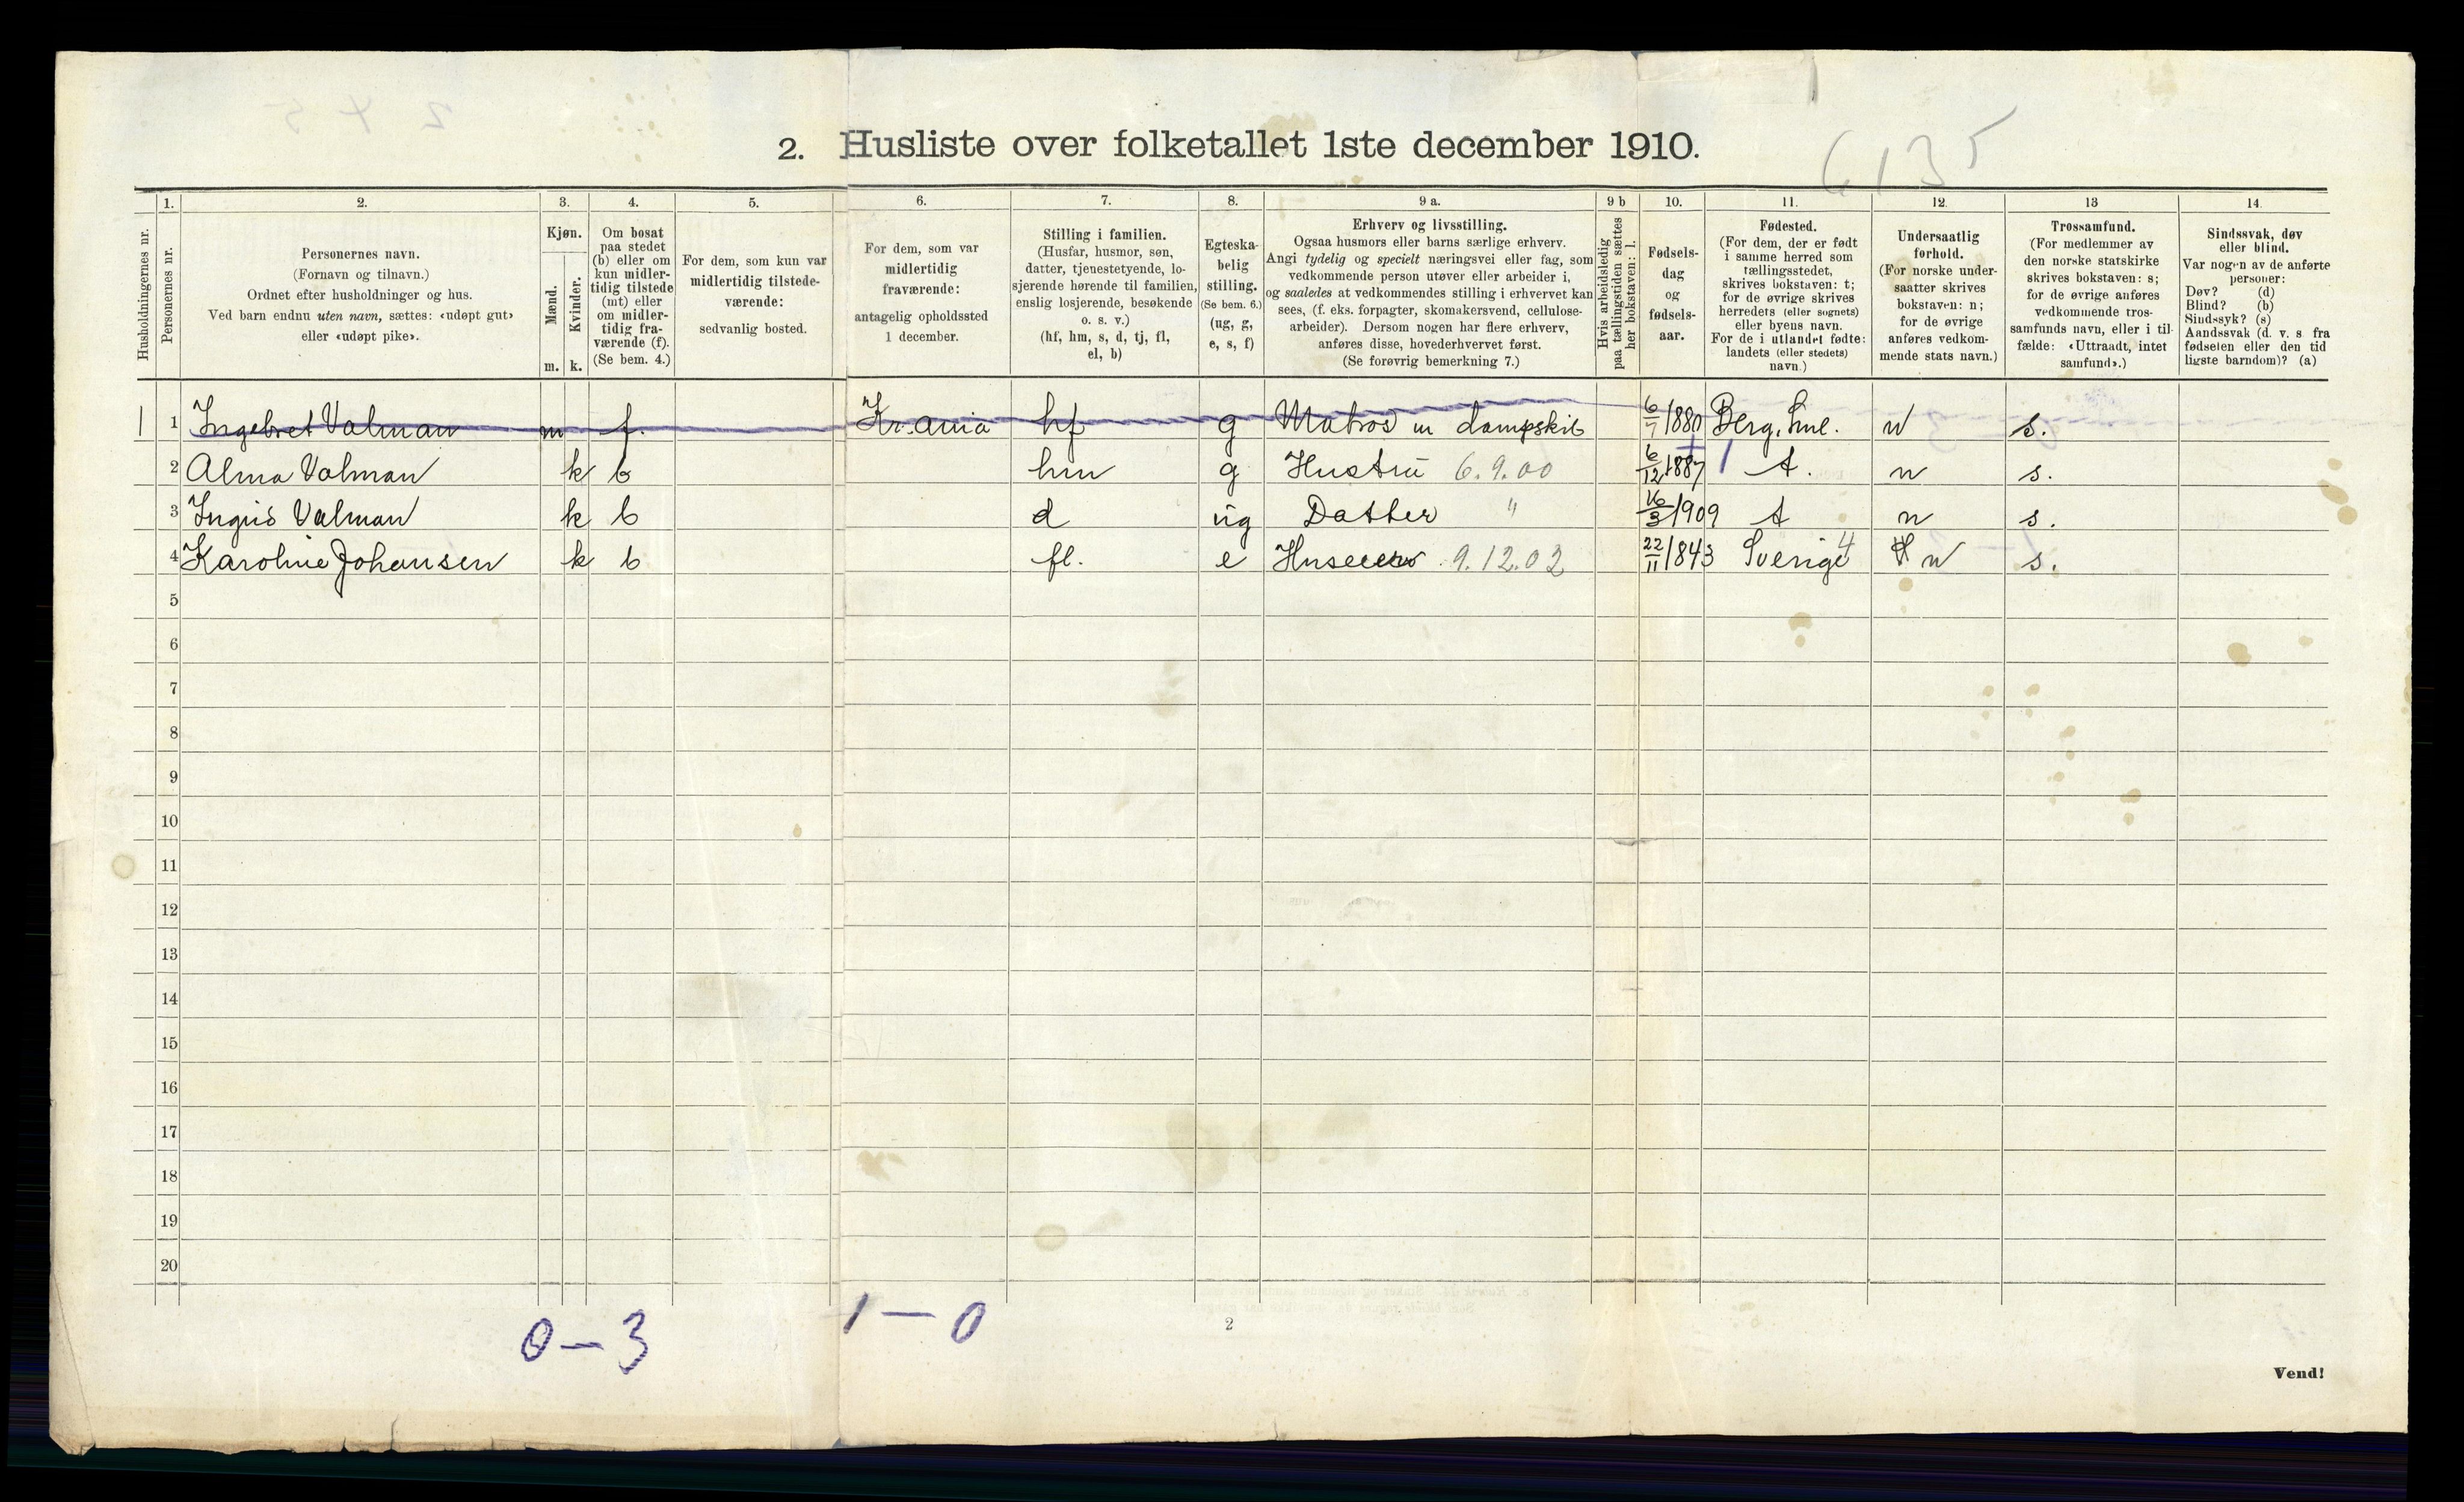 2. Husliste over folketallet 1ste december 1910.
6135
Husholdningernes nr.
1. Personernes nr.
2. Personernes navn.
(Fornavn og tilnavn.)
Ordnet efter husholdninger og hus.
Ved barn endnu uten navn, sættes: «udøpt gut»
eller «udøpt pike».
3. Kjøn.
Mænd. m.
Kvinder. k.
4. Om bosat
paa stedet
(b) eller om
kun midler-
tidig tilstede
(mt) eller
om midler-
tidig fra-
værende (f).
(Se bem. 4.)
5. For dem, som kun var
midlertidig tilstede-
værende:
sedvanlig bosted.
6. For dem, som var
midlertidig
fraværende:
antagelig opholdssted
1 december.
7. Stilling i familien.
(Husfar, husmor, søn,
datter, tjenestetyende, lo-
sjerende hørende til familien,
enslig losjerende, besøkende
o. s. v.)
(hf, hm, s, d, tj, fl,
el, b)
8. Egteska-
belig
stilling.
(Se bem. 6.)
(ug, g,
e, s, f)
9 a. Erhverv og livsstilling.
Ogsaa husmors eller barns særlige erhverv.
Angi tydelig og specielt næringsvei eller fag, som
vedkommende person utøver eller arbeider i,
og saaledes at vedkommendes stilling i erhvervet kan
sees, (f. eks. forpagter, skomakersvend, cellulose-
arbeider). Dersom nogen har flere erhverv,
anføres disse, hovederhvervet først.
(Se forøvrig bemerkning 7.)
9 b Hvis arbeidsledig
paa tællingstiden sættes
her bokstaven: l.
10. Fødsels-
dag
og
fødsels-
aar.
11. Fødested.
(For dem, der er født
i samme herred som
tællingsstedet,
skrives bokstaven: t;
for de øvrige skrives
herredets (eller sognets)
eller byens navn.
For de i utlandet fødte:
landets (eller stedets)
navn.)
12. Undersaatlig
forhold.
(For norske under-
saatter skrives
bokstaven: n;
for de øvrige
anføres vedkom-
mende stats navn.)
13 Trossamfund.
(For medlemmer av
den norske statskirke
skrives bokstaven: s;
for de øvrige anføres
vedkommende tros-
samfunds navn, eller i til-
fælde: «Uttraadt, intet
samfund».)
14. Sindssvak, døv
eller blind.
Var nogen av de anførte
personer:
Døv? (d)
Blind? (b)
Sindssyk? (s)
Aandssvak (d. v. s fra
fødselen eller den tid
ligste barndom)? (a)
1 1 Ingebret Valman m f. Kr.ania hf g Matros m dampskib 6/7 1880 Berg, Sml. n s.
2 Alma Valman k b hm g Hustru 6.9.00 6/12 1887 t. n s.
3 Ingrid Valman k b d ug Datter " 16/3 1909 t n s.
4 Karoline Johansen k b fl. e 9.12.02 22/11 1843 Sverige 4 n s.
5
6
7
8
9
10
11
12
13
14
15
16
17
18
19
20
0 – 3
1 – 0
2
Vend!